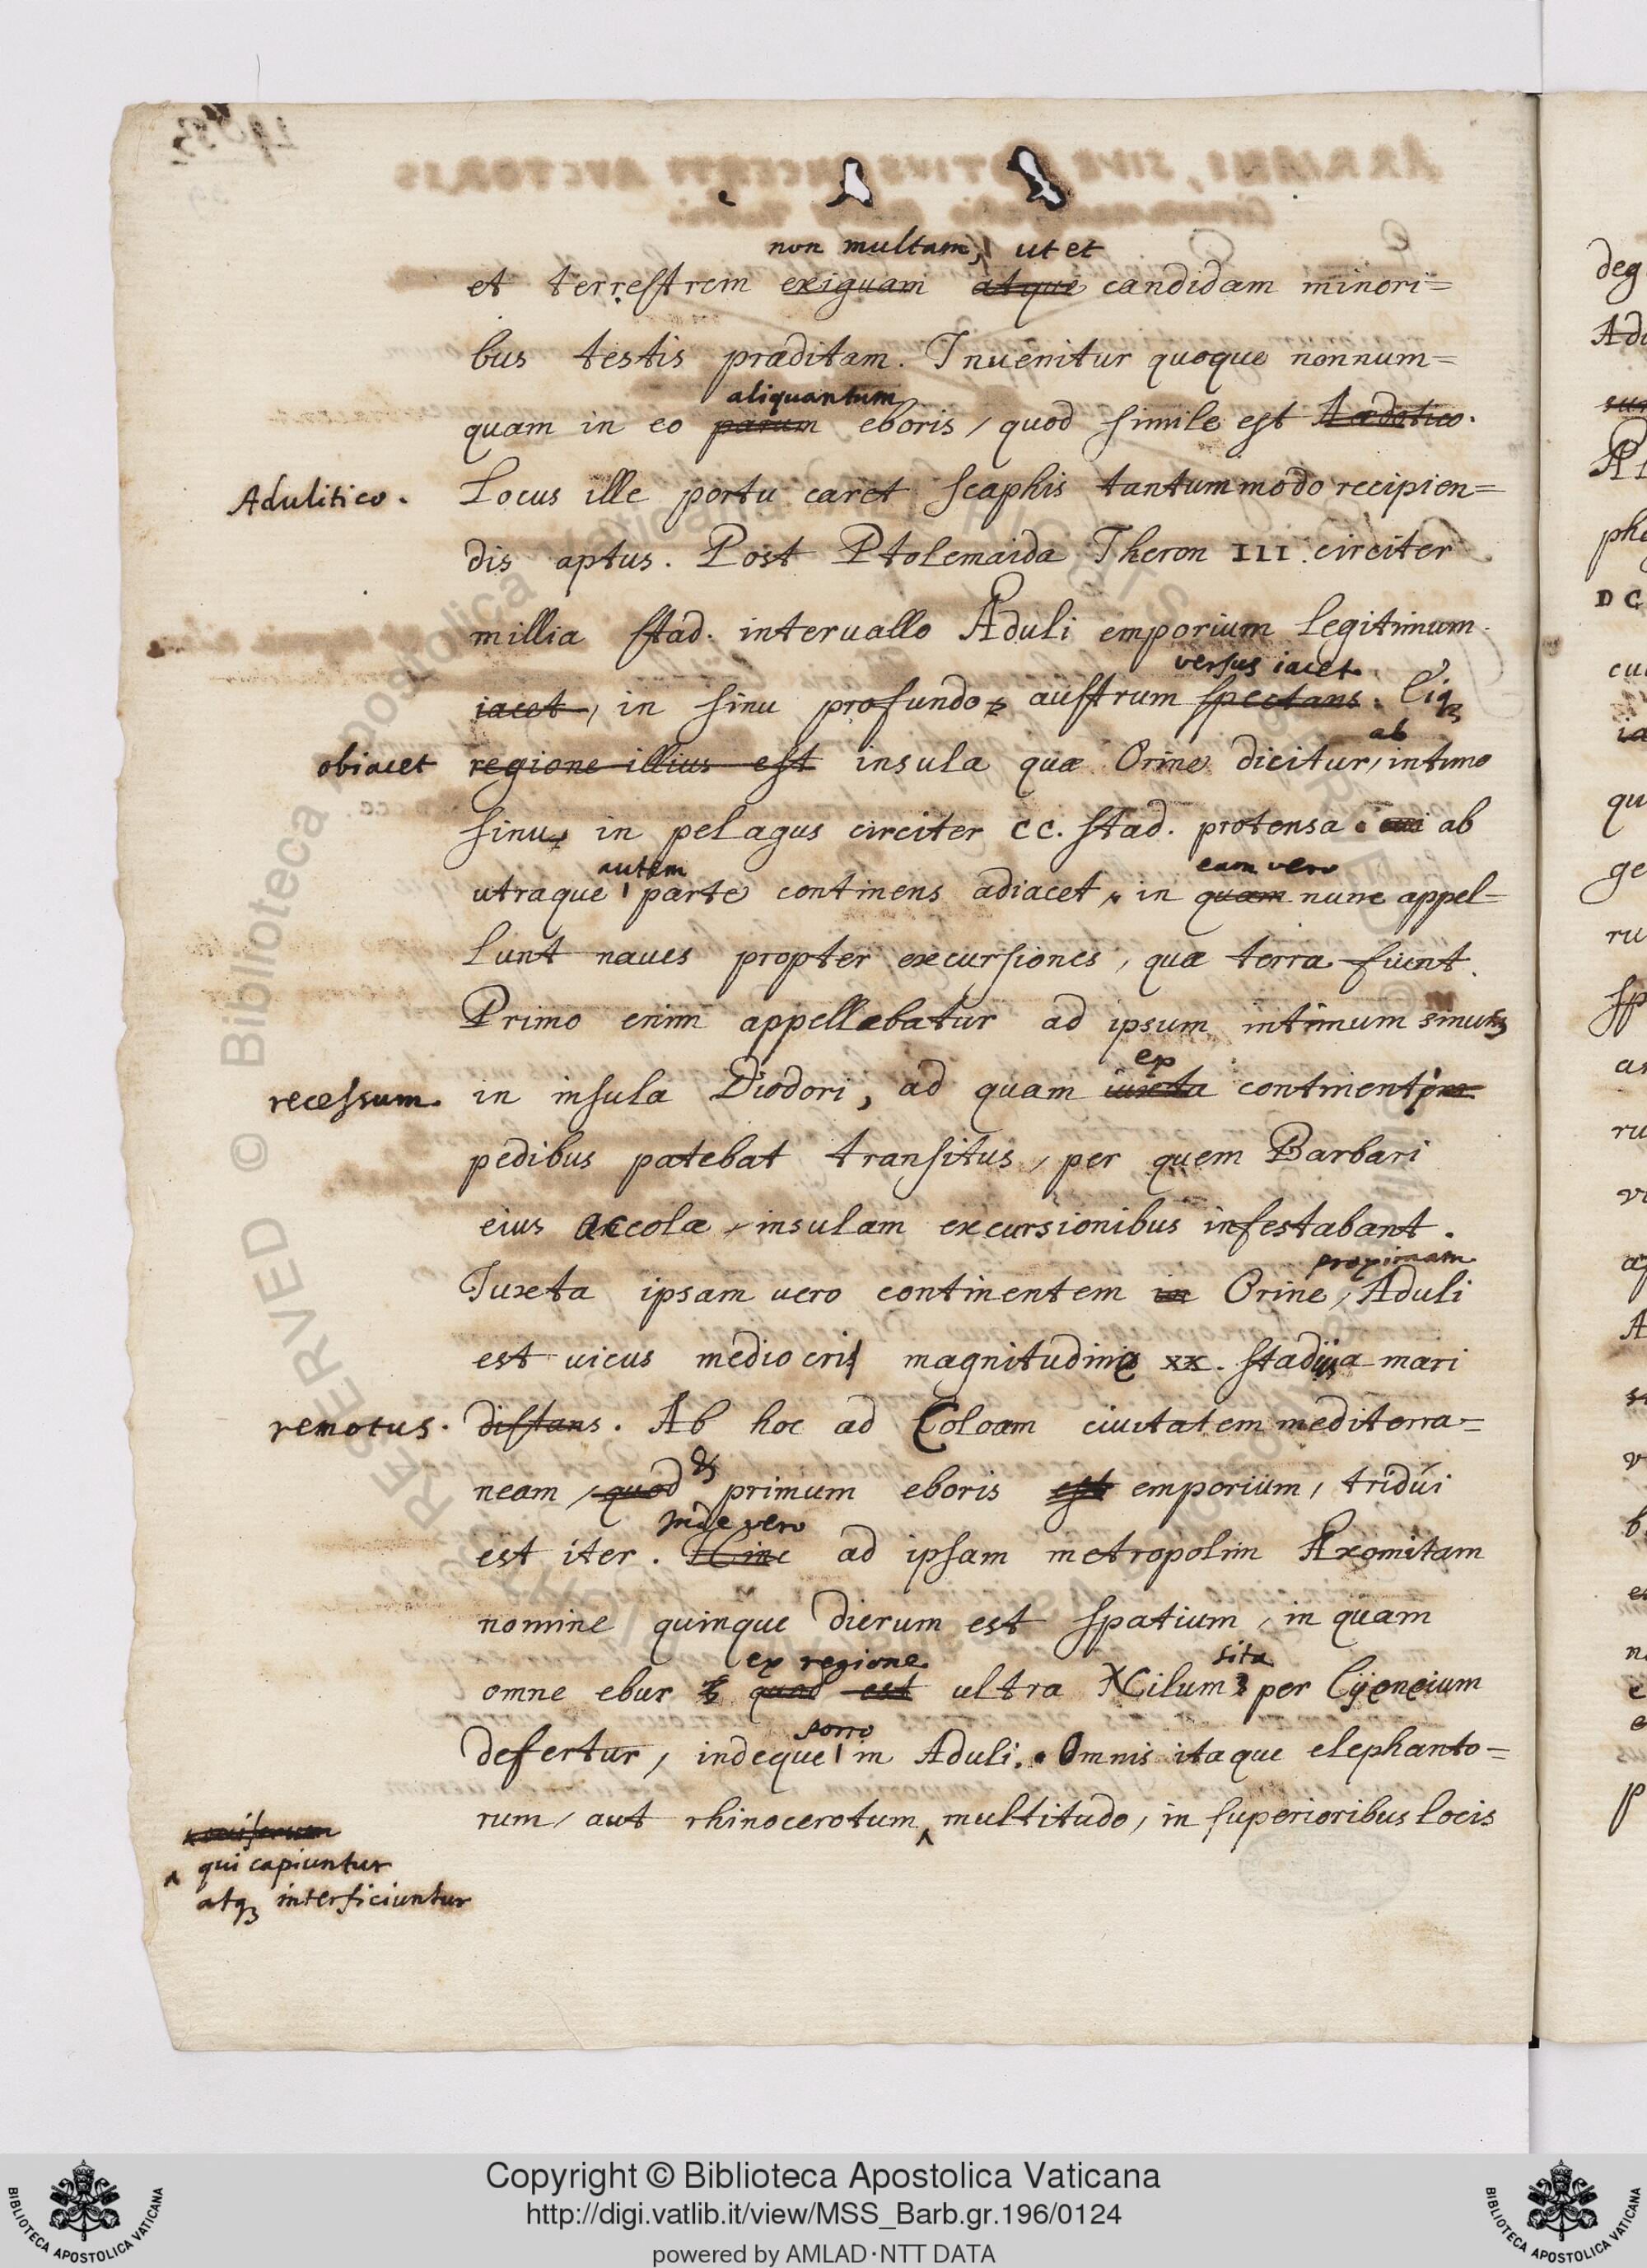 non multam, ut et
et terrestrem exiguam atque candidam minori=
bus testis præditam. Inuenitur quoque nonnum=
aliquantum
quam in eo parum eboris, quod simile est
Adulitico. Locus ille portu caret scaphis tantummodo recipien=
dis aptus. Post Ptolemaida Theron III. circiter
millia stad. interuallo Aduli emporium legitimum
versus iacet
iacet, in sinu profundo austrum spectans. Eiq3
ab
obiacet regione illius est insula quæ Orine dicitur, intimo
sinu, in pelagus circiter CC. stad. protensa. cui ab
autem eam vero
utraque parte continens adiacet, in quam nunc appel=
lunt naues propter excursiones, quæ terra fiunt.
Primo enim appellebatur ad ipsum intimum sinus
ex
recessum. in insula Diodori, ad quam iuxta continente
pedibus patebat transitus, per quem Barbari
eius accolæ, insulam excursionibus infestabant.
proximam
Iuxta ipsam uero continentem in Orine, Aduli
est uicus mediocris magnitudine xx. stadijs a mari
remotus. distans. Ab hoc ad Coloam ciuitatem mediterra=
&
neam, quod primum eboris est emporium, tridui
Inde vero
est iter. Hinc ad ipsam metropolim Axomitam
nomine quinque dierum est spatium, in quam
ex regione sita
omne ebur quod est ultra Nilum per Cyeneium
porro
defertur, indeque in Aduli. Omnis itaque elephanto=
rum, aut rhinocerotum ‸ multitudo, in superioribus locis
‸ qui capiuntur
atq3 interficiuntur
deg
ph
DC
cu
qu
ge
ru
sp
as
ru
A
p
© Biblioteca Apostolica Vaticana
Copyright © Biblioteca Apostolica Vaticana
http://digi.vatlib.it/view/MSS_Barb.gr.196/0124
powered by AMLAD·NTT DATA
BIBLIOTECA APOSTOLICA VATICANA
BIBLIOTECA APOSTOLICA VATICANA